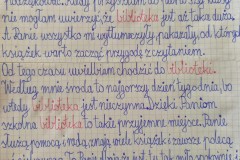 podziękować. Kiedy przyszłam do
nie mogłam uwierzyć, że biblioteka jest aż taka duża.
A Panie wszystko mi wytłumaczyły, pokazały, od których
książek warto zacząć przygodę z czytaniem.
Od tego czasu uwielbiam chodzić do biblioteki.
Według mnie środa to najgorszy dzień tygodnia, bo
wtedy biblioteka jest nieczynna. Dzięki Paniom
szkolna biblioteka to takie przyjemne miejsce. Panie
służą pomocą i radą, znają wiele książek